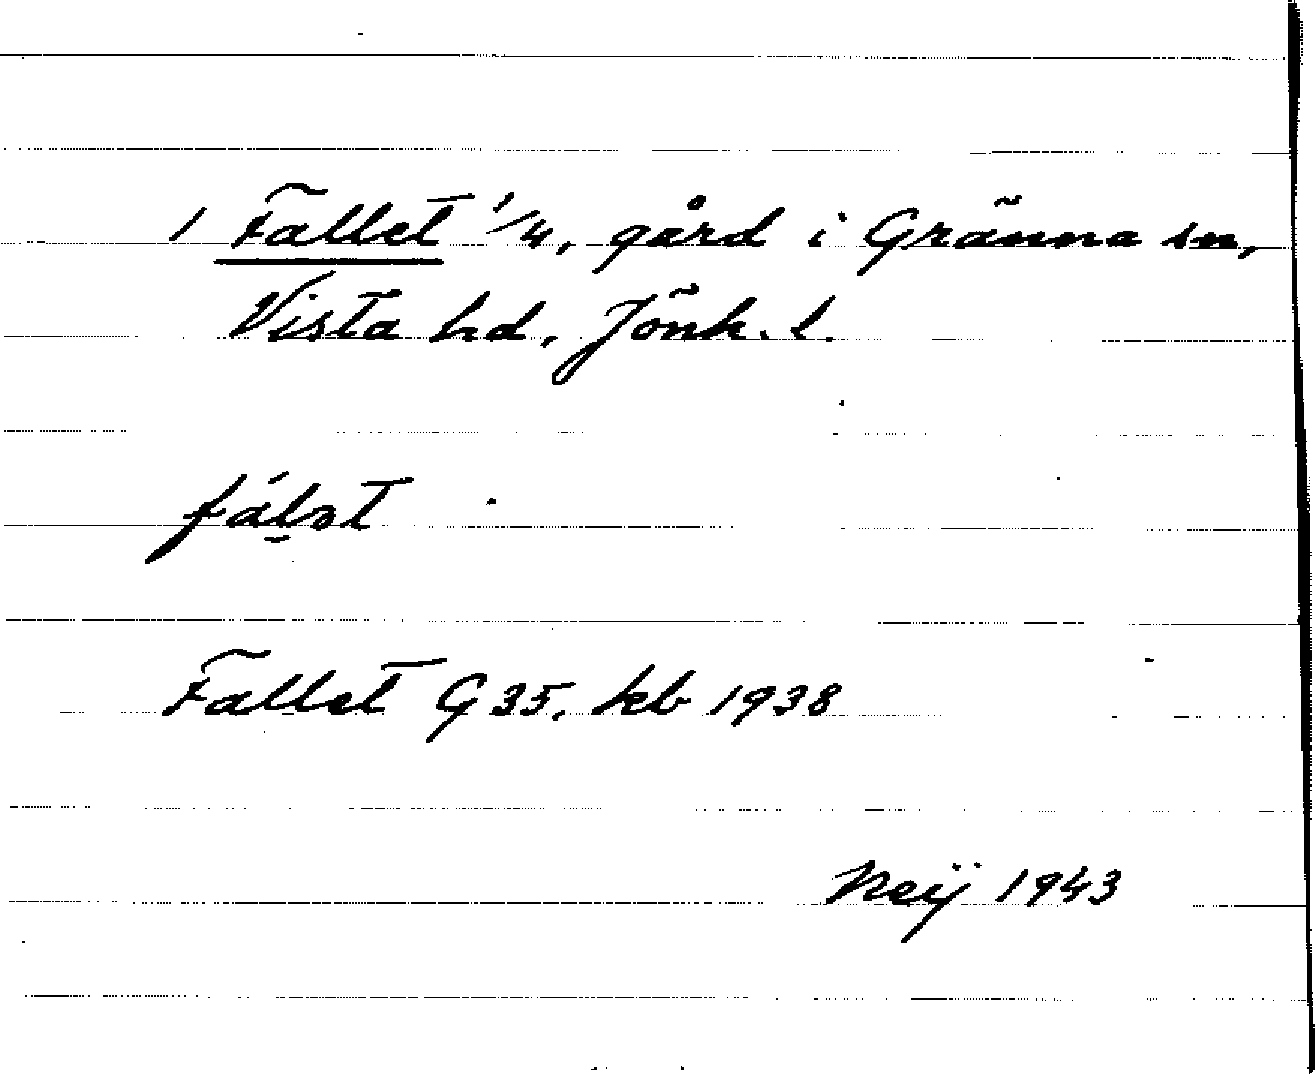 1 Fallet 1/4, gård i Gränna sn,
Vista hd, Jönk. l.
fál̮ət
Fallet G 35, kb 1938
Neij 1943